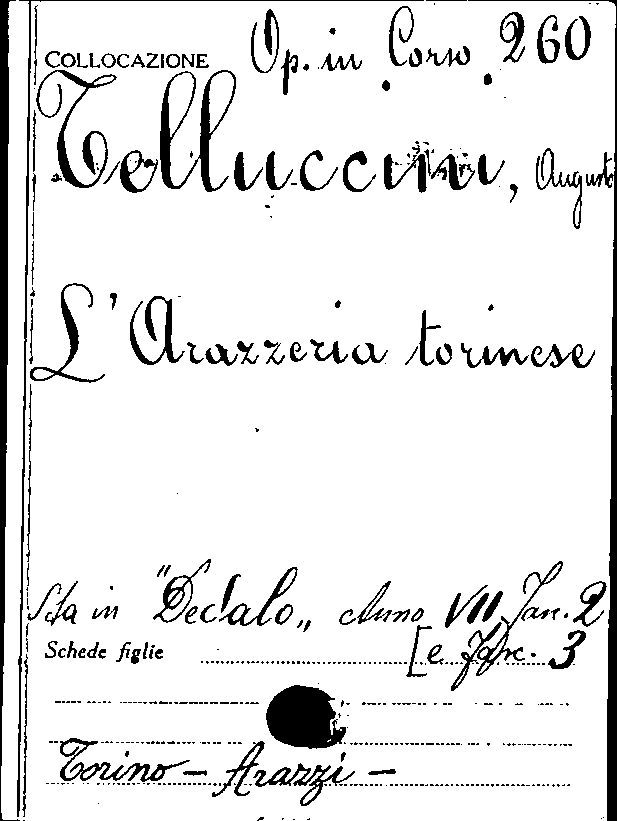 COLLOCAZIONE Op. in Corso 260
Telluccini, Augusto
L'Arazzeria torinese
Sta in "Dedalo„ Anno VII, Fasc. 2
Schede figlie [e Fasc. 3
Torino - Arazzi -